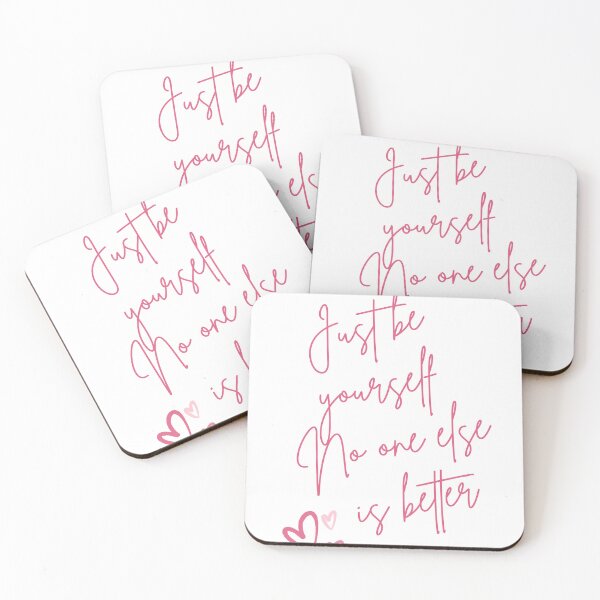 Just be
yourself
Just be
yourself
No one else
Just be
yourself
No one else
is
Just be
yourself
No one else
is better